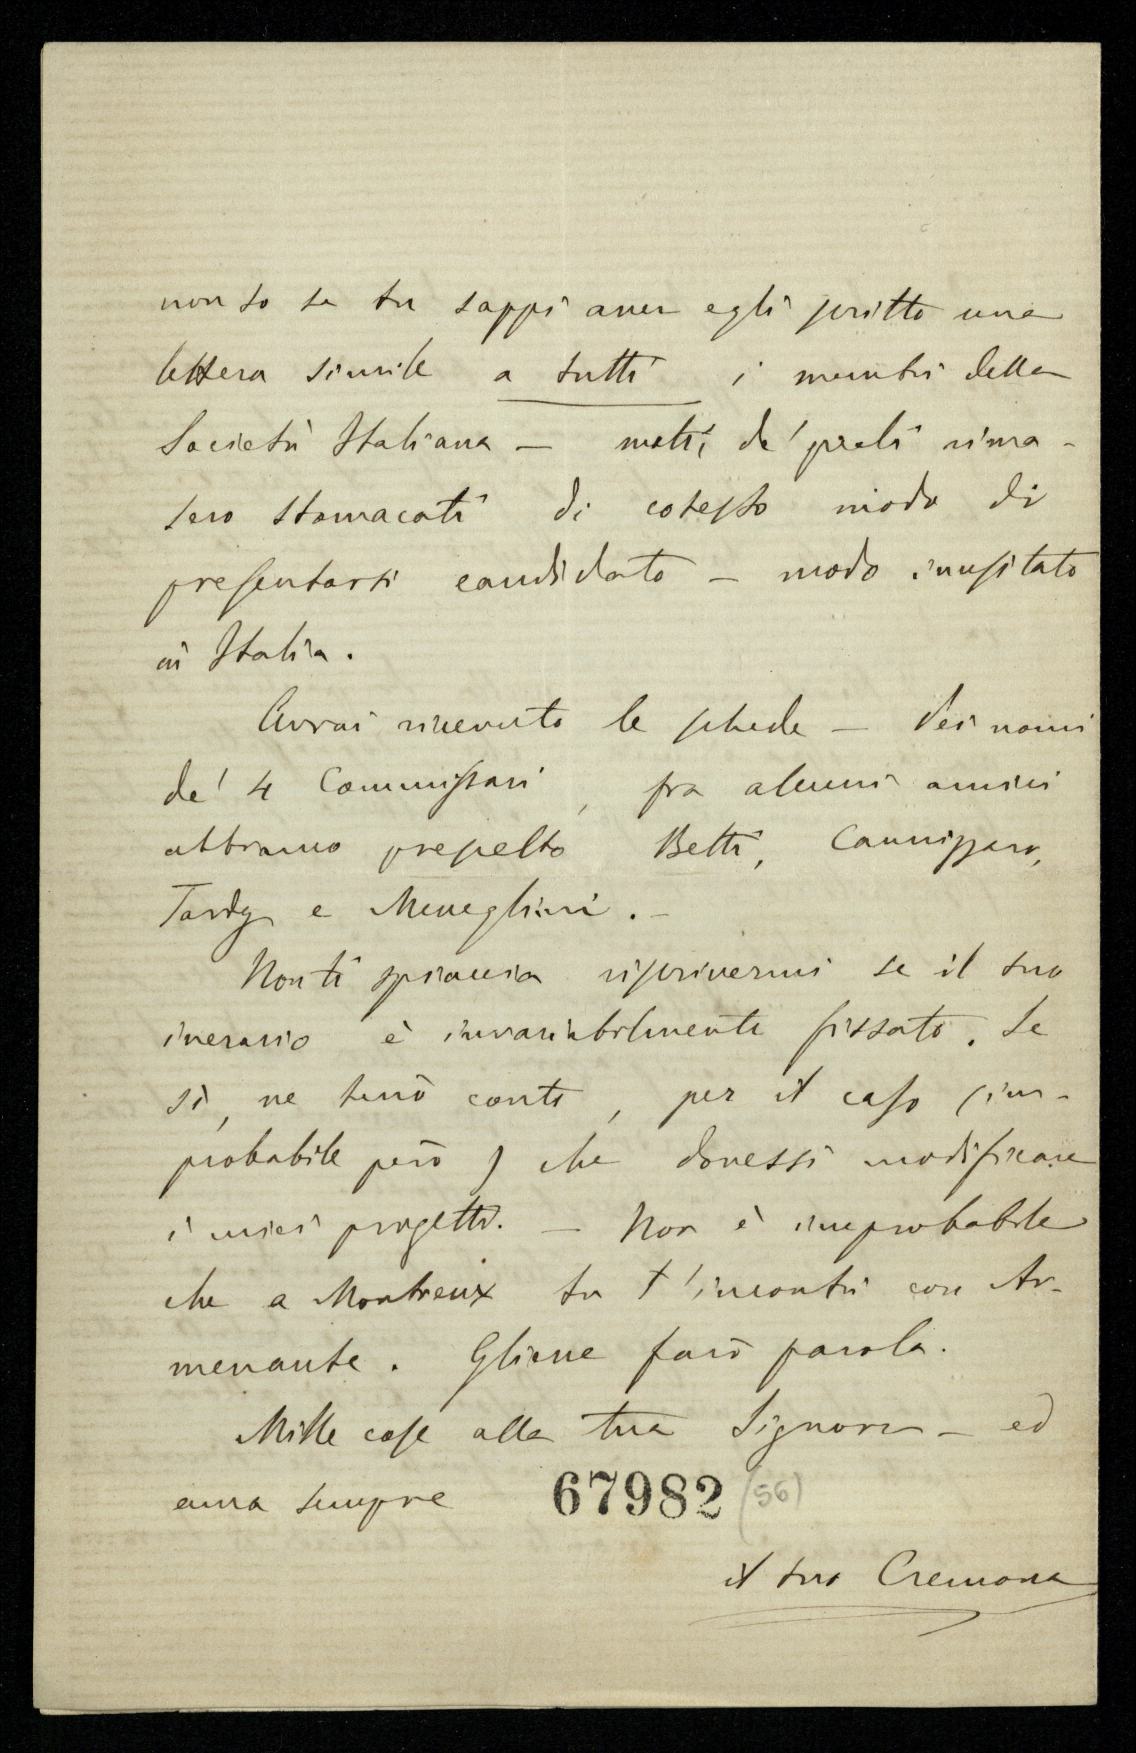 non so se tu sappi aver egli scritto una
lettera simile a tutti i membri della
Società Italiana — molti de' quali rima-
sero stomacati di cotesto modo di
presentarsi candidato — modo inusitato
in Italia.
Avrai ricevuto le schede — Dei nomi
de' 4 Commissari, fra alcuni amici
abbiamo prescelto Betti, Cannizzaro,
Tardy e Meneghini. —
Non ti spiaccia riscrivermi se il tuo
inerario è invariabilmente fissato. Se
sì, ne terrò conto, per il caso (im-
probabile però) che dovessi modificare
i miei progetti. — Non è improbabile
che a Montreux tu t'incontri con Ar-
menante. Gliene farò parola.
Mille cose alla tua Signora — ed
ama sempre
67982 (56)
il tuo Cremona